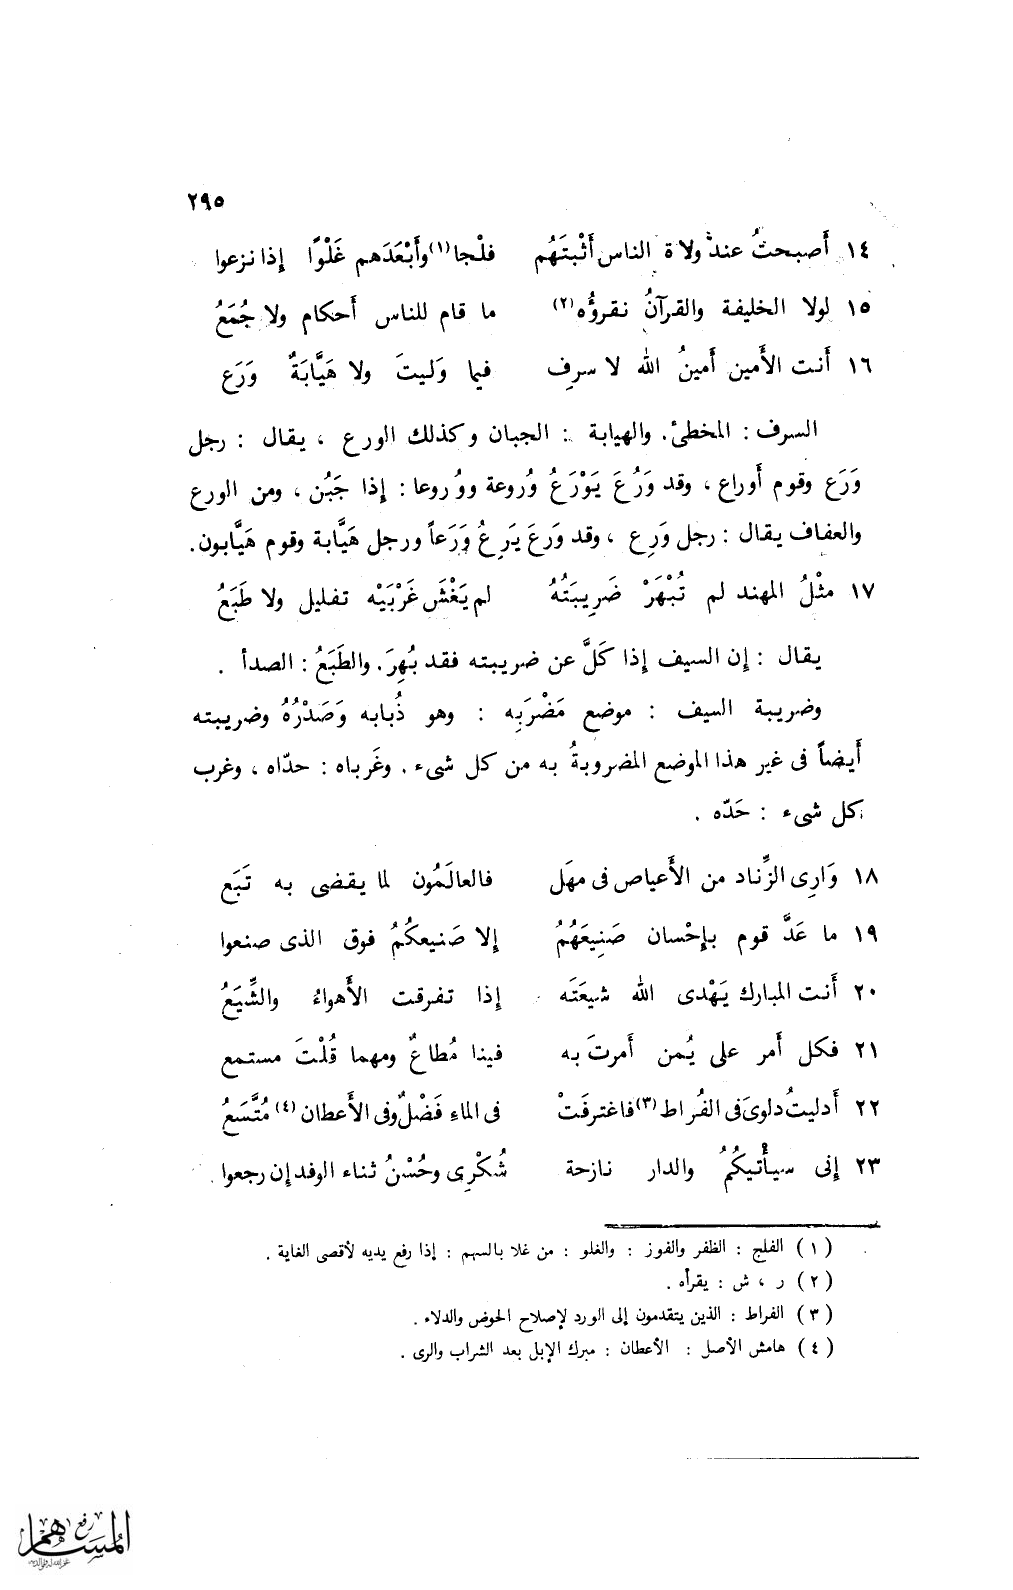 ٢٩٥
١٤ أَصبحتُ عند ولاة الناس أَثْبتَهُم فلْجا(١) وأَبْعَدَهم غَلْوًا إذا نزعوا
١٥ لولا الخليفة والقرآنُ نقرؤُه(٢) ما قام للناس أَحكام ولا جُمَعُ
١٦ أَنت الأَمين أَمينُ الله لا سرِف فيما وَليتَ ولا هَيَّابَةٌ وَرَع
السرف : المخطئ. والهيابة : الجبان وكذلك الورع ، يقال : رجل
وَرَع وقوم أَوراع ، وقد وَرُعَ يَوْرَعُ وُروعة ووُروعا : إذا جَبُن ، ومن الورع
والعفاف يقال : رجل وَرِع ، وقد وَرَعَ يَرِعُ وَرَعاً ورجل هَيَّابة وقوم هَيَّابون.
١٧ مثْلُ المهند لم تُبْهَرْ ضَرِيبَتُهُ لم يَغْشَ غَرْبَيْه تفليل ولا طَبَعُ
يقال : إن السيف إذا كَلَّ عن ضريبته فقد بُهِرَ. والطَبَعُ : الصدأ .
وضريبة السيف : موضع مَضْرَبِه : وهو ذُبابه وَصَدْرُهُ وضريبته
أَيضاً فى غير هذا الموضع المضروبةُ به من كل شىء . وغَرباه : حدّاه ، وغرب
كل شىء : حَدّه .
١٨ وَارِى الزِّناد من الأَعياص فى مهَل فالعالَمُون لما يقضى به تَبَع
١٩ ما عَدَّ قوم بإِحْسان صَنِيعَهُمُ إلا صَنيعكُمُ فوق الذى صنعوا
٢٠ أَنت المبارك يَهْدى الله شيعَتَه إذا تفرقت الأَهواءُ والشِّيَعُ
٢١ فكل أَمر على يُمن أَمرتَ به فينا مُطاعٌ ومهما قُلْتَ مستمع
٢٢ أَدليتُ دلوىَ فى الفُراط(٣) فاغترفَتْ فى الماء فَضْلٌ وفى الأَعطان(٤) مُتَّسَعُ
٢٣ إنى سيأْتيكُمُ والدار نازحة شُكْرِى وحُسْنُ ثناء الوفد إن رجعوا .
(١) الفلج : الظفر والفوز : والغلو : من غلا بالسهم : إذا رفع يديه لأقصى الغاية .
(٢) ر ، ش : يقرأه .
(٣) الفراط : الذين يتقدمون إلى الورد لإصلاح الحوض والدلاء .
(٤) هامش الأصل : الأعطان : مبرك الإبل بعد الشراب والرى .
رفع
المساهم